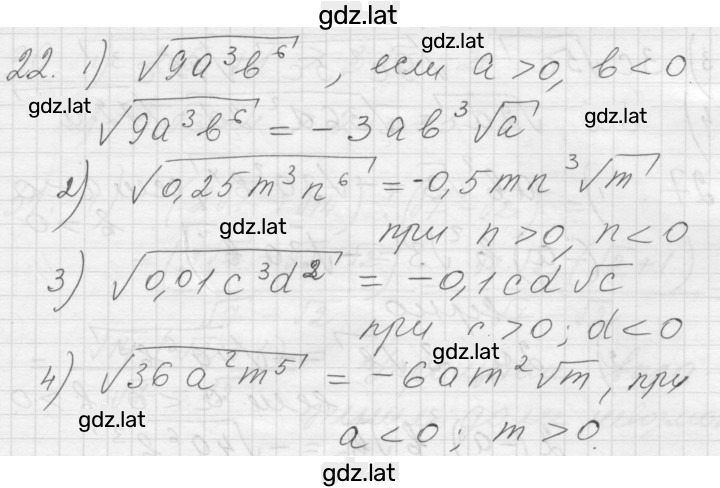 gdz.lat
22. 1) √(9a³b⁶), если a > 0, b < 0
gdz.lat
gdz.lat
√(9a³b⁶) = -3ab³√a
gdz.lat
2) √(0,25m³n⁶) = -0,5mn³√m
gdz.lat
при n > 0, n < 0
3) √(0,01c³d²) = -0,1cd√c
при c > 0; d < 0
gdz.lat
4) √(36a²m⁵) = -6am²√m, при
gdz.lat
a < 0; m > 0.
gdz.lat